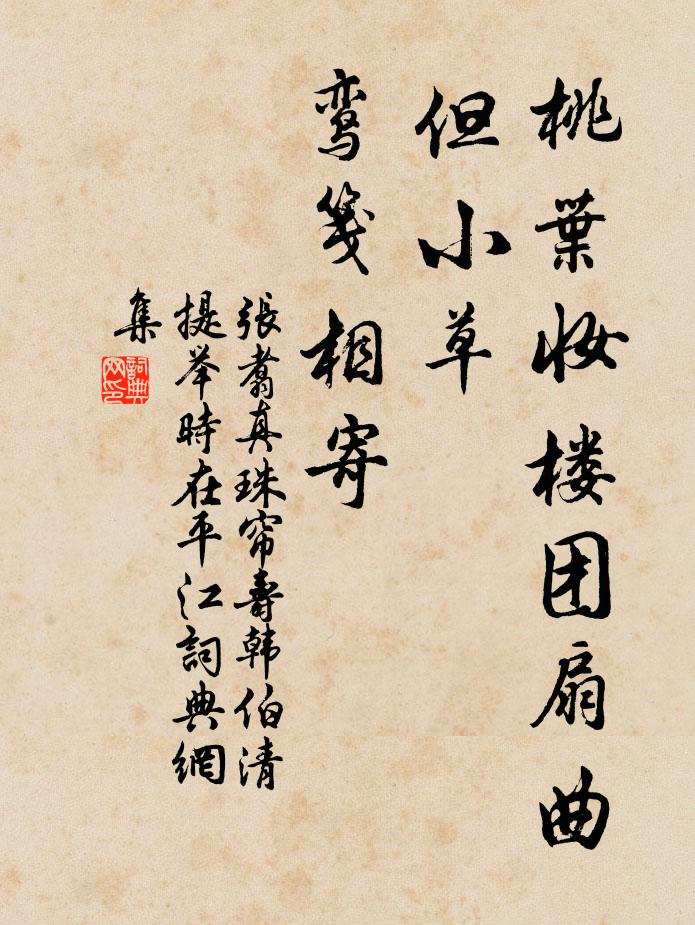 桃葉妆楼团扇曲
但小草
鸾箋相寄
張翥真珠帘壽韩伯清
提举時在平江詞典網
集
詞典
网印